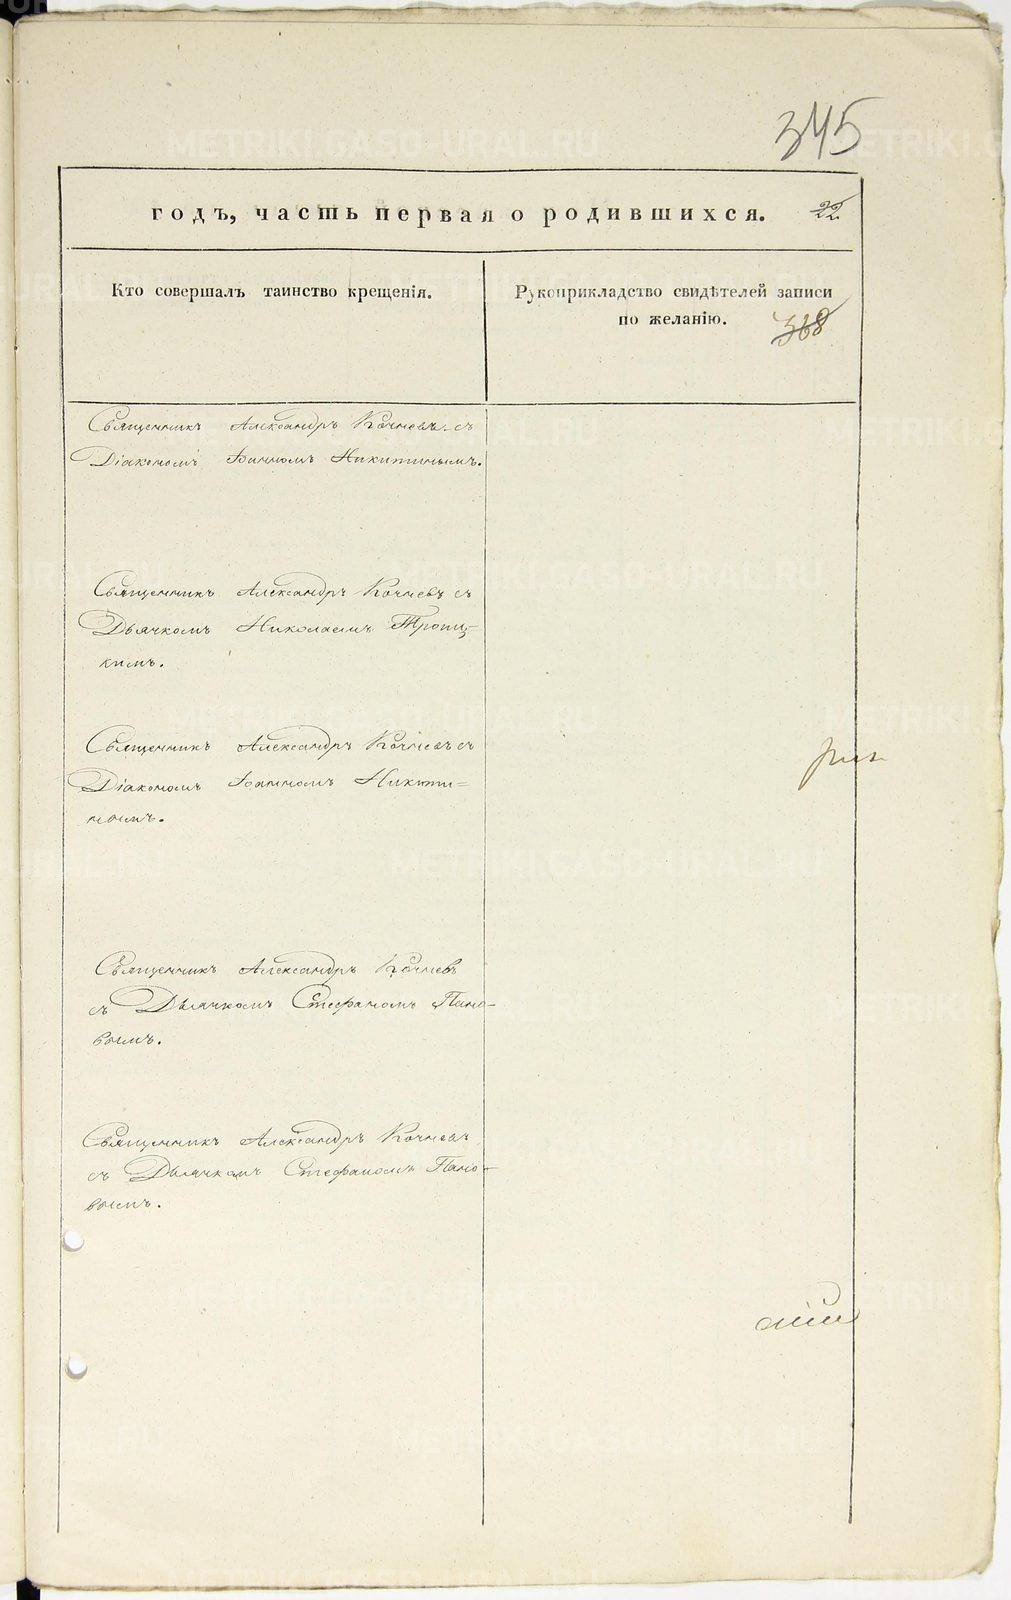 345
годъ, часть первая о родившихся. 22
Кто совершалъ таинство крещенія.
Рукоприкладство свидѣтелей записи
по желанію.
368
Священникъ Александръ Кочневъ съ
Діакономъ Іоанномъ Никитинымъ.
Священникъ Александръ Кочневъ съ
Дьячкомъ Николаемъ Троиц-
кимъ.
Священникъ Александръ Кочневъ съ
Діакономъ Іоанномъ Никити-
нымъ.
Священникъ Александръ Кочневъ
съ Дьячкомъ Стефаномъ Пано-
вымъ.
Священникъ Александръ Кочневъ
съ Дьячкомъ Стефаномъ Пано-
вымъ.
METRIKI.GASO-URAL.RU